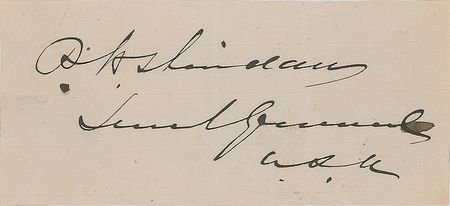 P. H. Sheridan
Lieut General
U.S.A.